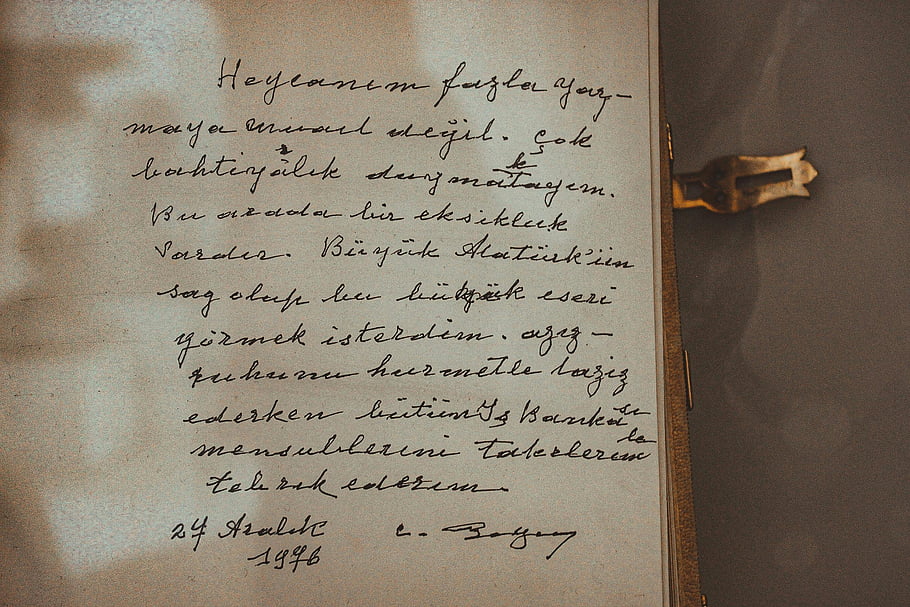 Heycanım fazla yaz-
maya müsait değil. Çok
bahtiyârlık duymaktayım.
Bu arada bir eksiklik
vardır. Büyük Atatürk'ün
sag olup bu büyük eseri
görmek isterdim. aziz-
ruhunu hurmetle taziz
ederken bütün İş Bankası
mensublerini takrlerimle
tebrik ederim.
27 Aralık C.
1976